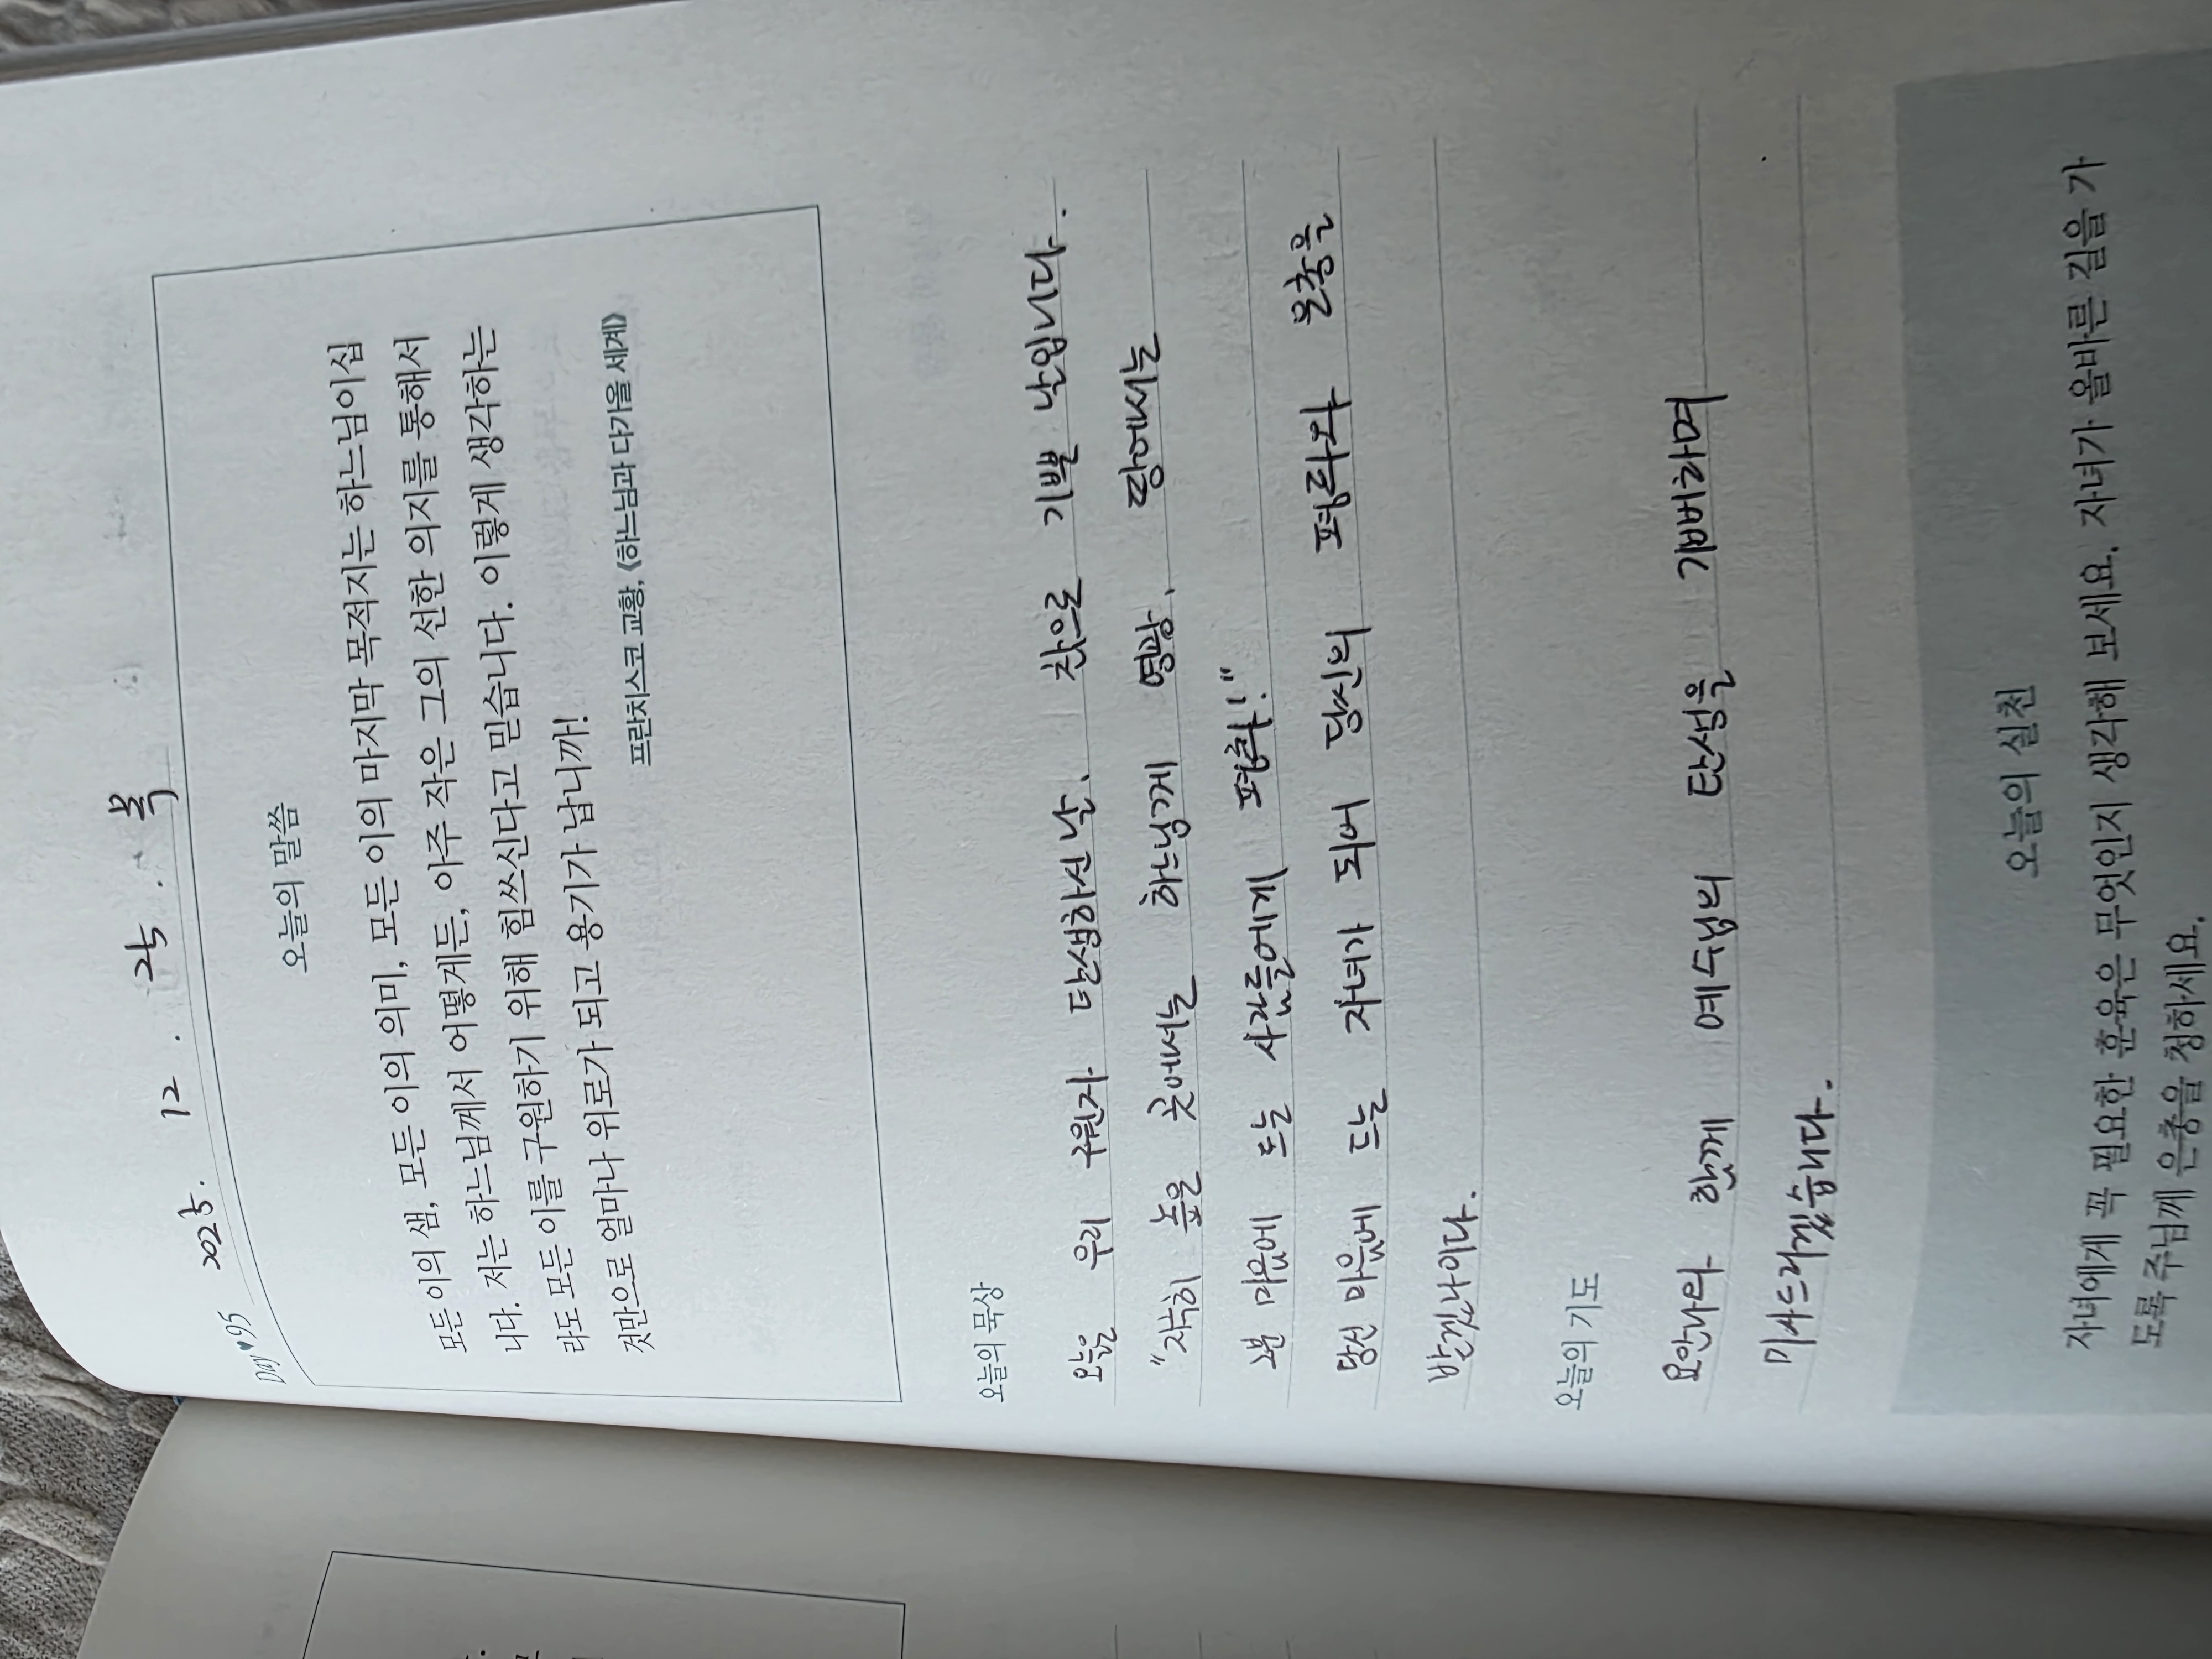 Day♥95 2025. 12. 25. 목
오늘의 말씀
모든 이의 샘, 모든 이의 의미, 모든 이의 마지막 목적지는 하느님이십
니다. 저는 하느님께서 어떻게든, 아주 작은 그의 선한 의지를 통해서
라도 모든 이를 구원하기 위해 힘쓰신다고 믿습니다. 이렇게 생각하는
것만으로 얼마나 위로가 되고 용기가 납니까!
프란치스코 교황, 《하느님과 다가올 세계》
오늘의 묵상
오늘은 우리 구원자 탄생하신 날, 참으로 기쁜 날입니다.
"지극히 높은 곳에서는 하느님께 영광, 땅에서는
그분 마음에 드는 사람들에게 평화!"
당신 마음에 드는 자녀가 되어 당신의 평화와 은총을
받겠나이다.
오늘의 기도
요안나와 함께 예수님의 탄생을 기뻐하며
미사드리겠습니다.
오늘의 실천
자녀에게 꼭 필요한 훈육은 무엇인지 생각해 보세요. 자녀가 올바른 길을 가
도록 주님께 은총을 청하세요.